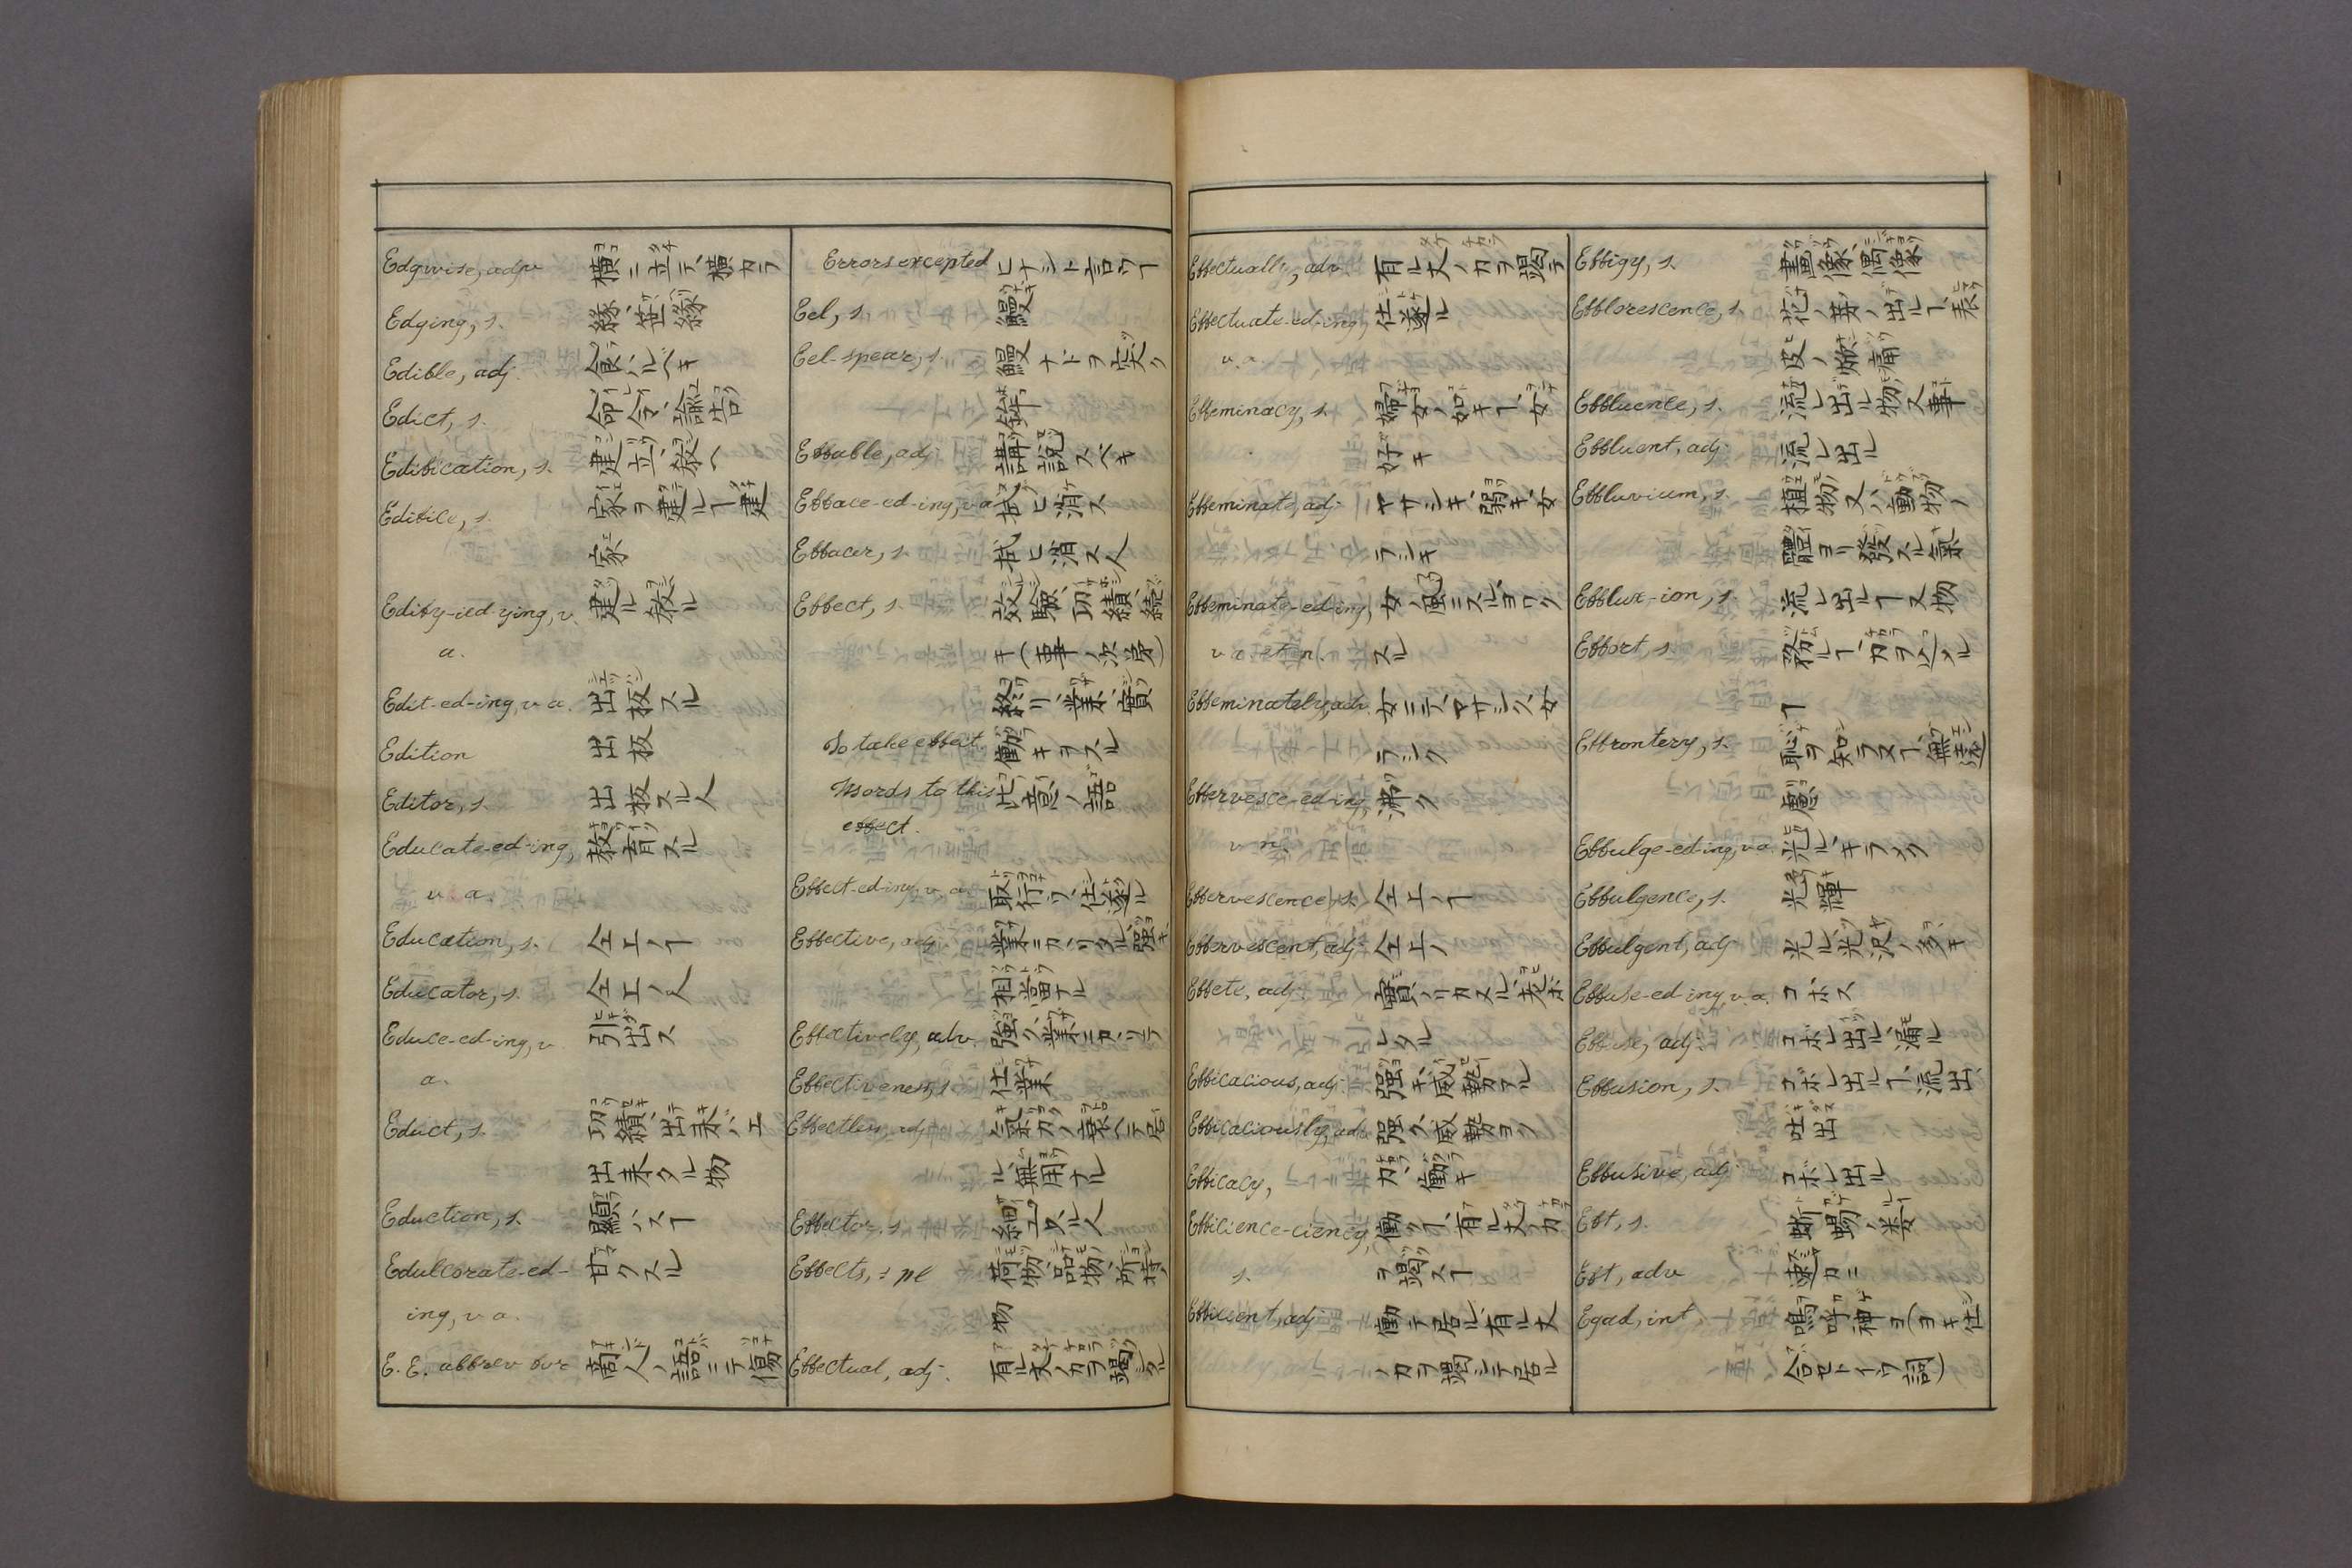 Edgwise, adv 横ニ立テ、横カラ
Edging, s. 縁、笹縁
Edible, adj. 食ハルベキ
Edict, s. 命令、諭告
Edification, s. 建立、教ヘ
Edifice, s. 家ヲ建ルヿ建
家
Edify-ied-ying, v. 建ル、教ル
a.
Edit-ed-ing, v a. 出板スル
Edition 出板
Editor, s. 出板スル人
Educate-ed-ing, 教育スル
v. a.
Education, s. 仝上ノヿ
Educator, s. 仝上ノ人
Educe-ed-ing, v 引出ス
a.
Educt, s. 功績、出来バエ
出来タル物
Eduction, s. 顕ハスヿ
Edulcorate-ed- 甘クスル
ing, v a.
E. E. abbrev for 商人ノ語ニテ傷
Errors excepted ヒナシト言フヿ
Eel, s. 鰻
Eel-spear, s. 鰻ナドヲ突ク
Effable, adj. 講説スベキ
Efface-ed-ing, v a 拭ヒ消ス
Effacer, s. 拭ヒ消ス人
Effect, s. 效驗、功績、続
キ(事ノ次第)
終リ、業、實
To take effect 働キヲスル
Words to this 此意ノ語
effect.
Effect-ed-ing, v. a. 取行フ、仕遂ル
Effective, adj. 業ニカヽリタル、强キ
相當ナル
Effectively, adv. 强ク、業ニカヽリテ
Effectiveness, s 仕業
Effectless, adj 氣力ノ衰ヘテ居
ル、無用ナル
Effector, s.
Effects, s pl 荷物、品物、所持
物
Effectual, adj. 有ル丈ノ力ヲ竭シタル
Effectually, adv 有ル丈ノ力ヲ竭テ
Effectuate-ed-ing, 仕遂ル
v. a.
Effeminacy, s. 婦女ノ如キヿ、女
好キ
Effeminate, adj ヤサシキ、弱キ、女
ラシキ
Effeminate-ed-ing, 女ノ風ニスル、ヨワク
v a. et n. スル
Effeminately, adv. 女ニテ、ヤサシク、女
ラシク
Effervesce-ed-ing, 沸ク
v n.
Effervescence, s. 仝上ノヿ
Effervescent, adj 仝上ノ
Effete, adj. 實ノリカヌル、老ボ
レタル
Efficacious, adj. 强キ、威勢アル
Efficaciously, adv 强ク、威勢ヨク
Efficacy, 力、働キ
Efficience-ciency, 働クヿ、有ル丈ノ力
s. ヲ竭スヿ
Efficient, adj 働テ居ル、有ル丈
ノ力ヲ竭シテ居ル
Effigy, s. 畫像、偶像
Efflorescence, s. 花ノ芽ノ出ルヿ、表
皮ノ燃痛
Effluence, s. 流レ出ル物、又事
Effluent, adj 流レ出ル
Effluvium, s. 植物又ハ動物ノ
體ヨリ發スル氣
Efflux-ion, s. 流レ出ルヿ又物
Effort, s. 務ルヿ、力ヲ込メル
ヿ
Effrontery, s. 恥ヲ知ラヌヿ、無遠
慮
Effulge-ed-ing, v a. 光ル、キラメク
Effulgence, s. 光輝
Effulgent, adj 光ル、光沢ノ多キ
Effuse-ed-ing, v. a. コボス
Effuse, adj. コボレ出ル、漏ル
Effusion, s. コボレ出ルヿ、流出、
吐出
Effusive, adj コボレ出ル
Eft, s. 蜥蜴ノ類
Eft, adv 速カニ
Egad, int 嗚呼神ヨ(ヨキ仕
合セトイフ詞)